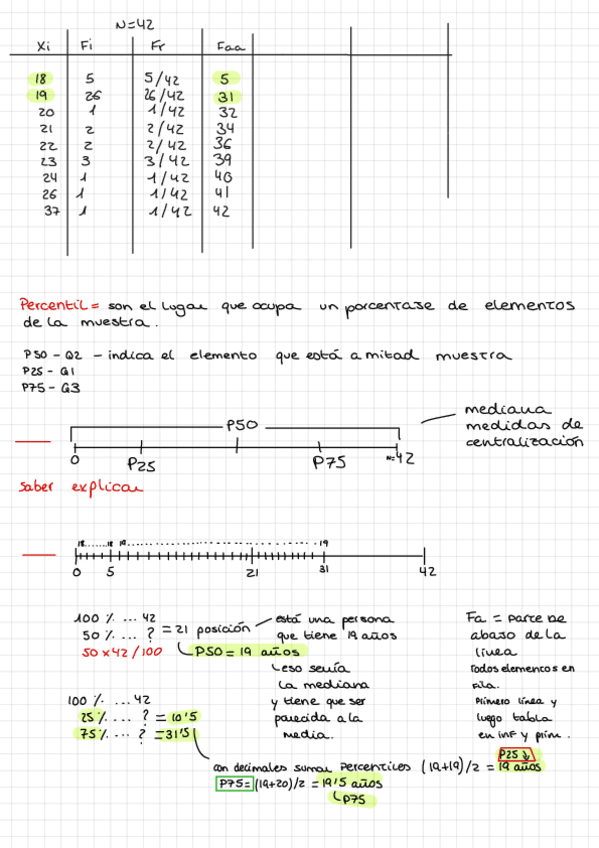 N=42
Xi Fi Fr Faa
18 5 5/42 5
19 26 26/42 31
20 1 1/42 32
21 2 2/42 34
22 2 2/42 36
23 3 3/42 39
24 1 1/42 40
26 1 1/42 41
37 1 1/42 42
Percentil = son el lugar que ocupa un porcentaje de elementos
de la muestra.
P50 - Q2 - indica el elemento que está a mitad muestra
P25 - Q1
P75 - Q3
P50
0 P25 P75 N=42
mediana
medidas de
centralización
Saber explicar
18.......18 19............................19
0 5 21 31 42
100 % ... 42
50 % ... ? = 21 posición
50 x 42 / 100
P50 = 19 años
está una persona
que tiene 19 años
eso sería
la mediana
y tiene que ser
parecida a la
media.
Fa = parte de
abajo de la
línea
todos elementos en
fila.
Primero línea y
luego tabla
en inf y prim.
100 % ... 42
25 % ... ? = 10'5
75 % ... ? = 31'5
con decimales sumar percentiles (19+19)/2 = 19 años
P25
P75 = (19+20)/2 = 19'5 años
P75